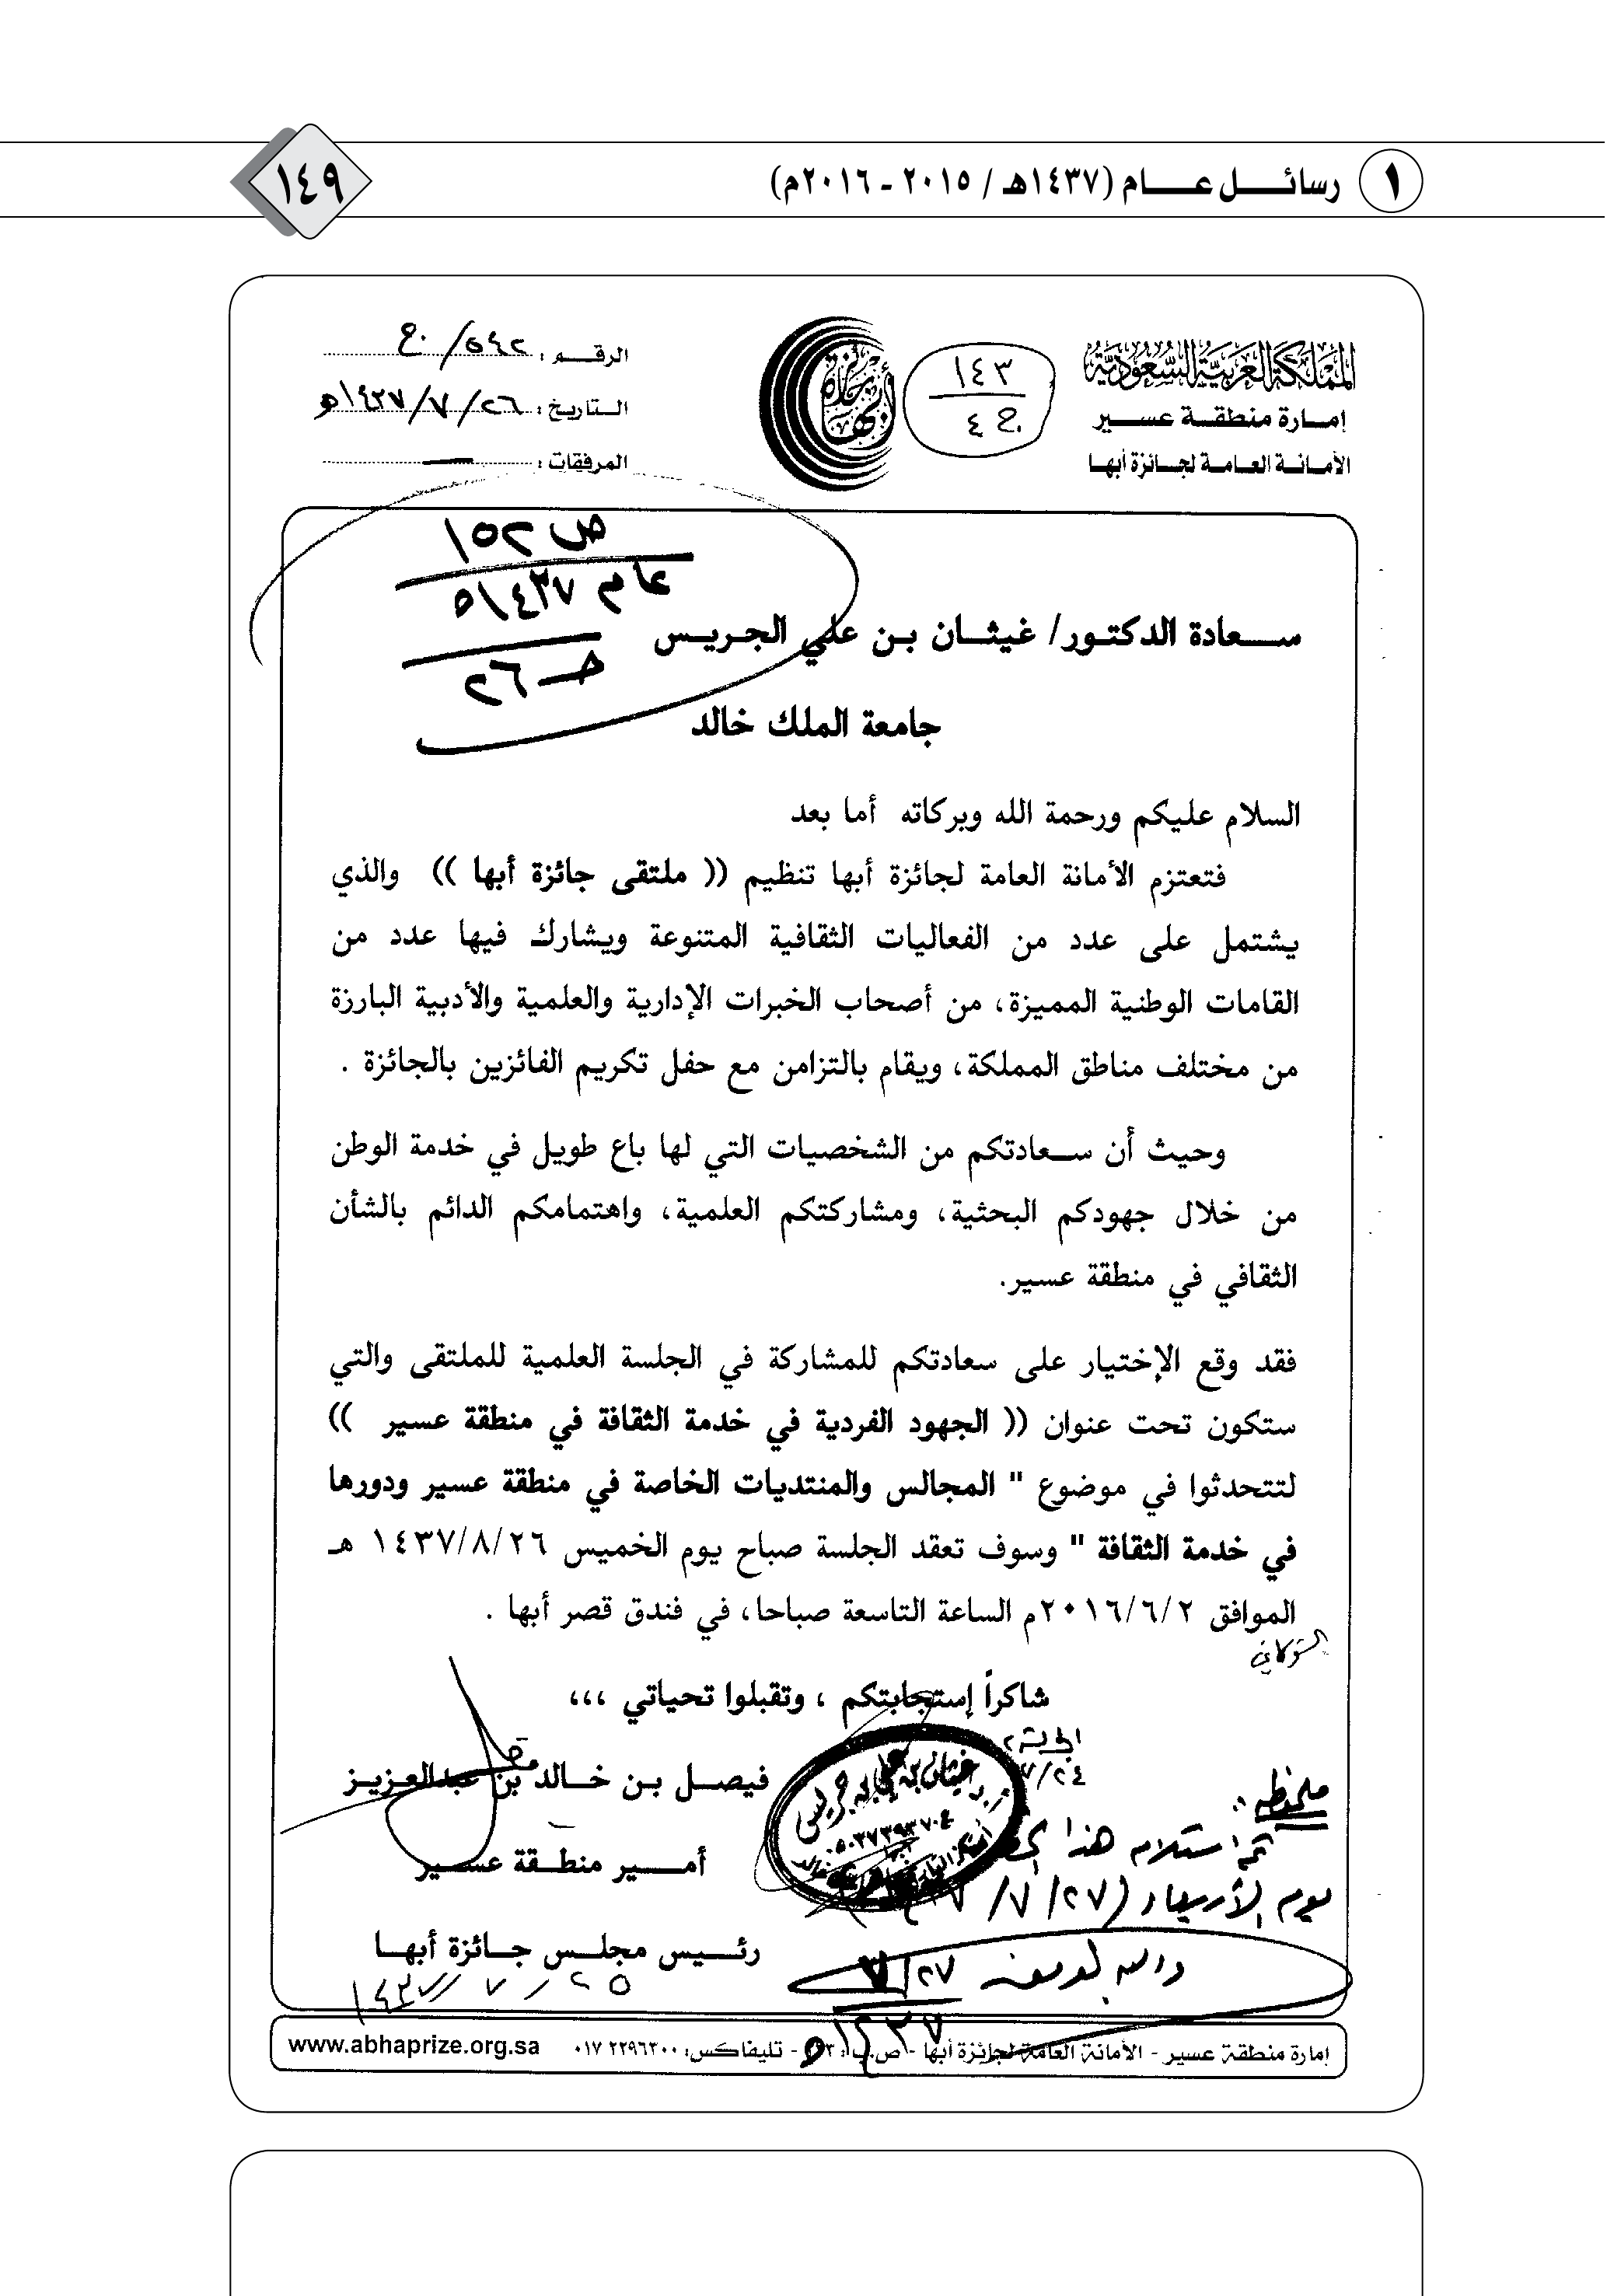 ١ رسائل عام (١٤٣٧هـ / ٢٠١٥ - ٢٠١٦م)
١٤٩
المملكة العربية السعودية
إمارة منطقة عسير
الأمانة العامة لجائزة أبها
١٤٣
ج ٤
جائزة أبها
الرقم : ٥٤٢/ج
التاريخ : ٢٦/٧/١٤٣٧هـ
المرفقات : —
ص ١٥٢
عام ١٤٣٧هـ
سعادة الدكتور/ غيثان بن علي الجريس
جامعة الملك خالد
السلام عليكم ورحمة الله وبركاته أما بعد
فتعتزم الأمانة العامة لجائزة أبها تنظيم (( ملتقى جائزة أبها )) والذي
يشتمل على عدد من الفعاليات الثقافية المتنوعة ويشارك فيها عدد من
القامات الوطنية المميزة، من أصحاب الخبرات الإدارية والعلمية والأدبية البارزة
من مختلف مناطق المملكة، ويقام بالتزامن مع حفل تكريم الفائزين بالجائزة .
وحيث أن سعادتكم من الشخصيات التي لها باع طويل في خدمة الوطن
من خلال جهودكم البحثية، ومشاركتكم العلمية، واهتمامكم الدائم بالشأن
الثقافي في منطقة عسير.
فقد وقع الإختيار على سعادتكم للمشاركة في الجلسة العلمية للملتقى والتي
ستكون تحت عنوان (( الجهود الفردية في خدمة الثقافة في منطقة عسير ))
لتتحدثوا في موضوع " المجالس والمنتديات الخاصة في منطقة عسير ودورها
في خدمة الثقافة " وسوف تعقد الجلسة صباح يوم الخميس ١٤٣٧/٨/٢٦ هـ
الموافق ٢٠١٦/٦/٢م الساعة التاسعة صباحا، في فندق قصر أبها .
شاكراً إستجابتكم ، وتقبلوا تحياتي ،،،
فيصل بن خالد بن عبدالعزيز
أمير منطقة عسير
رئيس مجلس جائزة أبها
٢٥ / ٧ / ١٤٣٧
ملحوظة :
تم استلام هذا
يوم الأربعاء (٢٧/٧/
والله الموفق ٢٧/٧
١٤٣٧هـ
إمارة منطقة عسير - الأمانة العامة لجائزة أبها - ص.ب: - تليفاكس: ٠١٧ ٢٢٩٦٣٠٠ www.abhaprize.org.sa